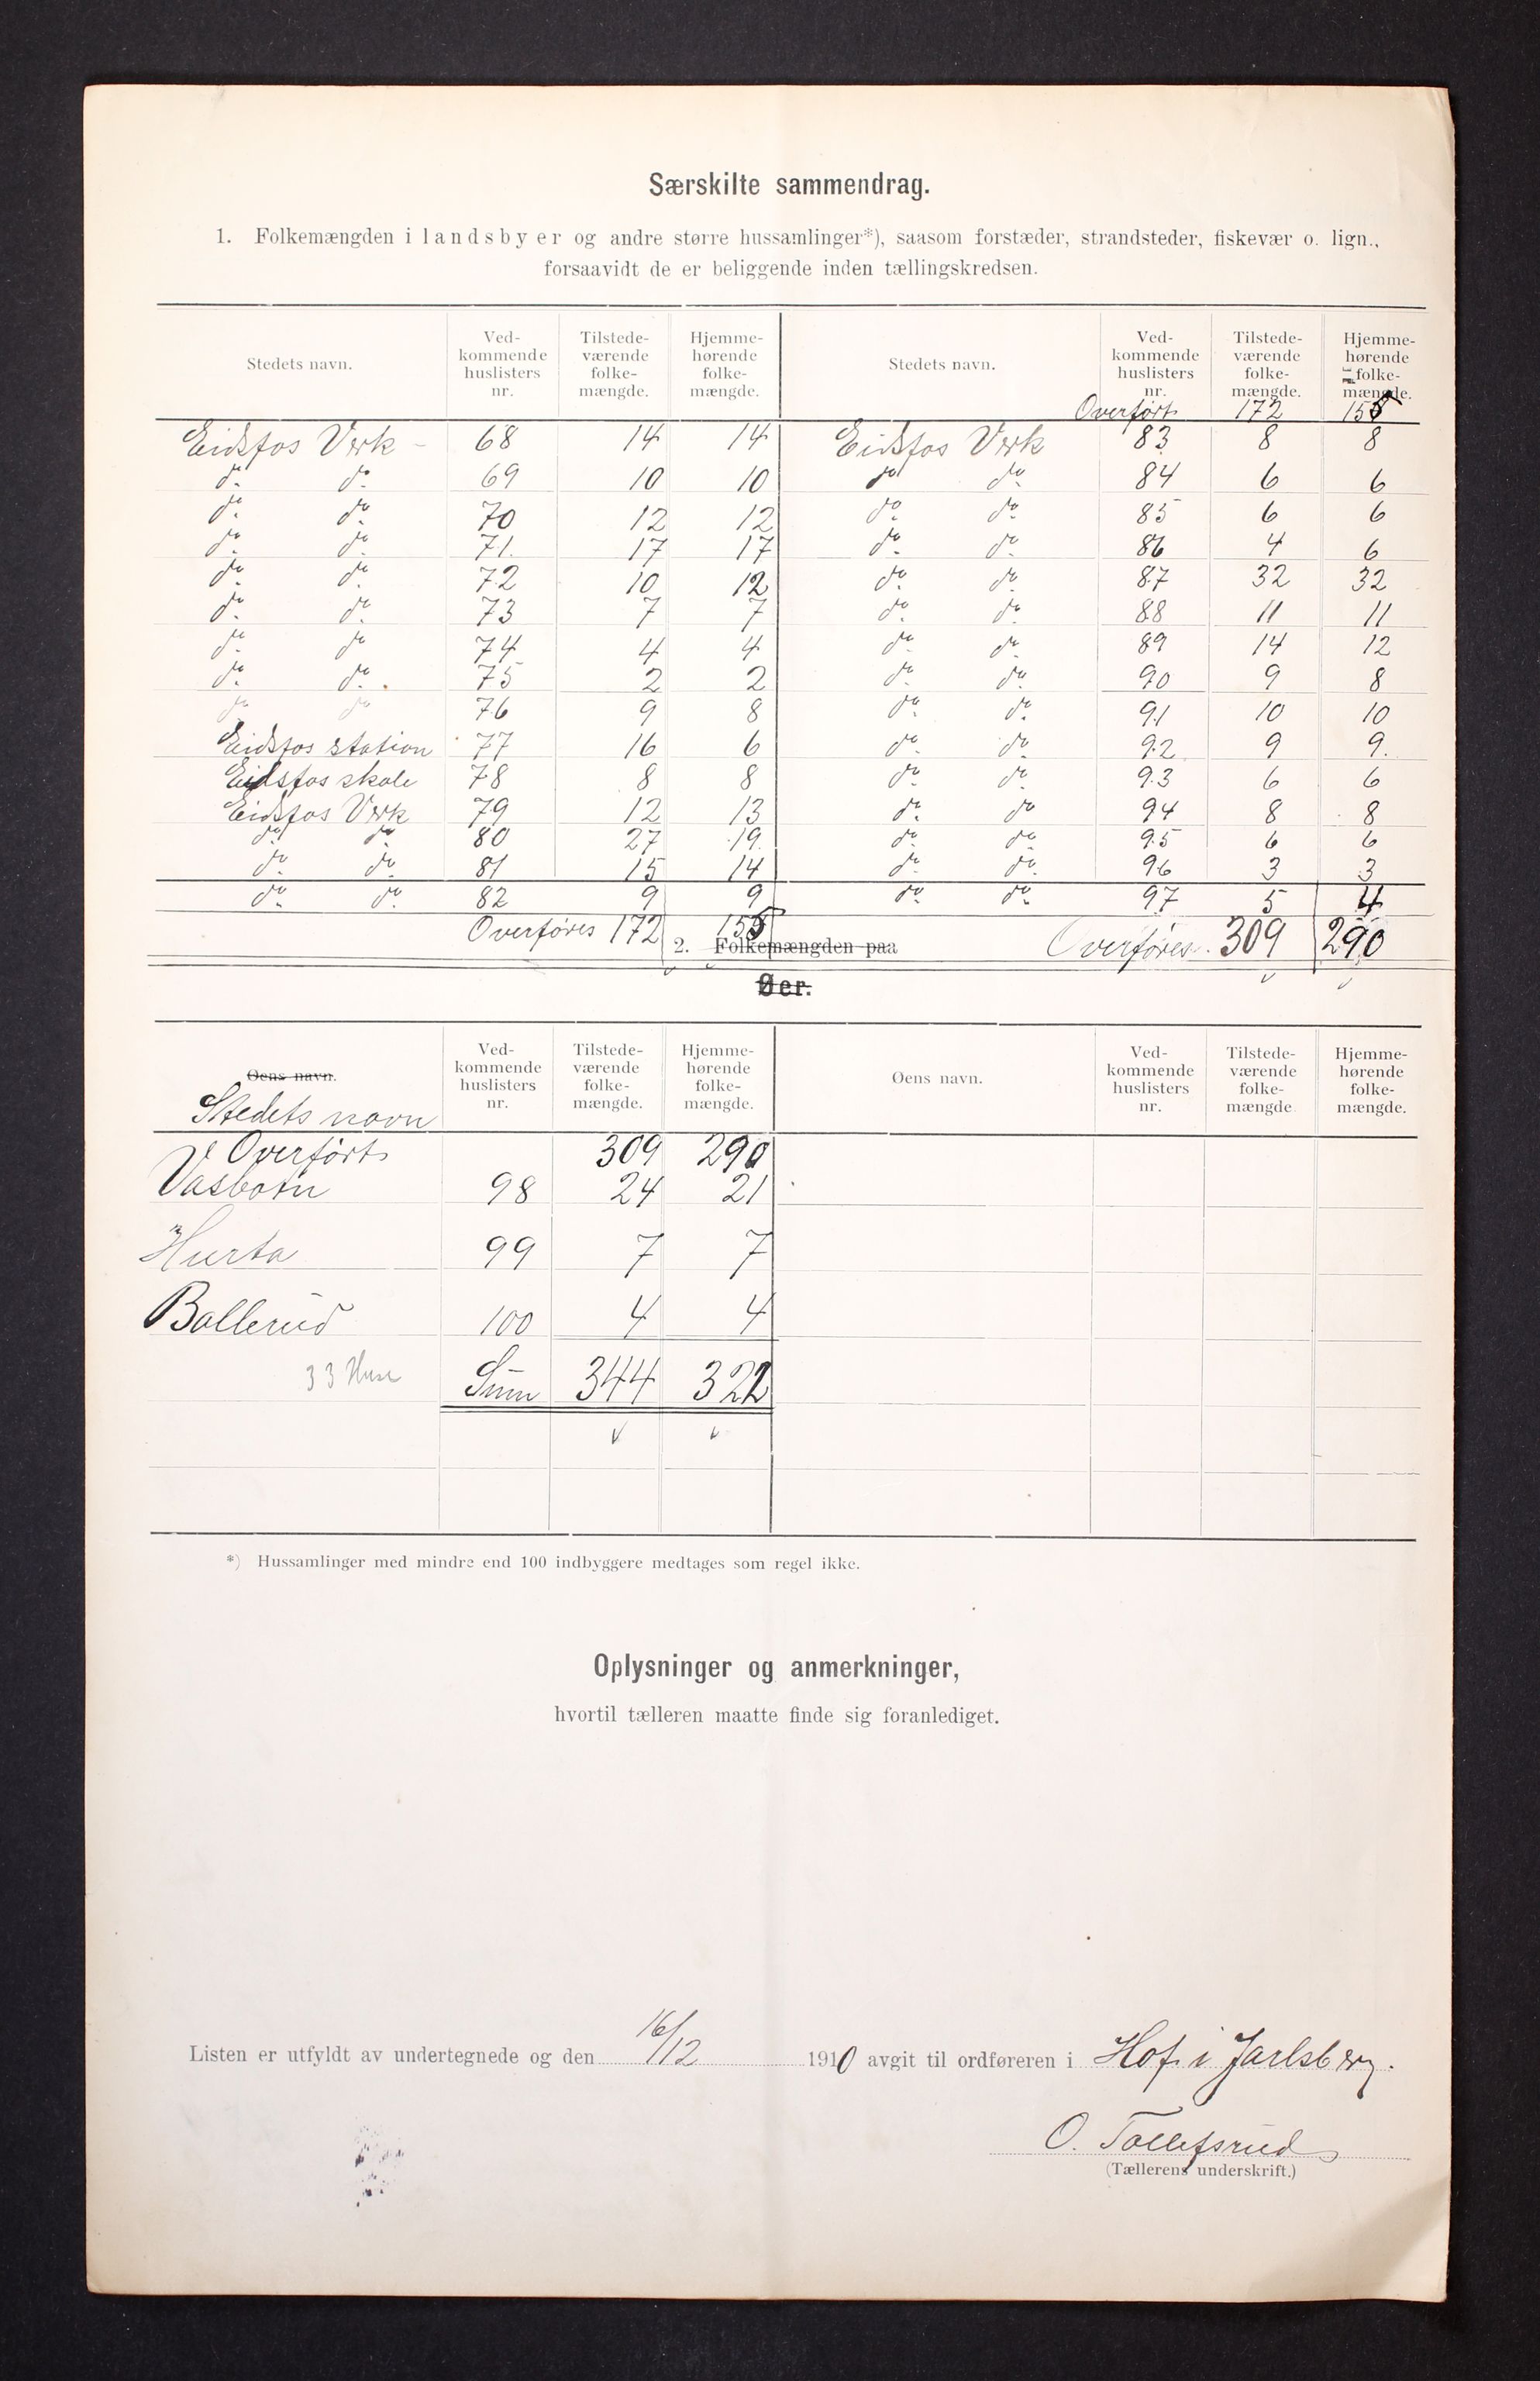 Særskilte sammendrag.
1. Folkemængden i landsbyer og andre større hussamlinger*), saasom forstæder, strandsteder, fiskevær o. lign.,
forsaavidt de er beliggende inden tællingskredsen.
Stedets navn. Ved-kommende huslisters nr. Tilstede-værende folke-mængde. Hjemme-hørende folke-mængde. Stedets navn. Ved-kommende huslisters nr. Tilstede-værende folke-mængde. Hjemme-hørende folke-mængde.
Overført 172 155
Eidsfos Verk - 68 14 14 Eidsfos Verk 83 8 8
do. do. 69 10 10 do do. 84 6 6
do. do. 70 12 12 do. do. 85 6 6
do. do. 71. 17 17 do. do. 86 4 6
do. do. 72 10 12 do. do. 87 32 32
do. do. 73 7 7 do. do. 88 11 11
do. do 74 4 4 do. do. 89 14 12
do. do. 75 2 2 do. do. 90 9 8
do. do 76 9 8 do. do. 91 10 10
Eidsfos station 77 16 6 do. do. 92 9 9.
Eidsfos skole 78 8 8 do. do. 93 6 6
Eidsfos Verk 79 12 13 do. do 94 8 8
do. do. 80 27 19. do. do. 95 6 6
do. do. 81 15 14 do. do. 96 3 3
do. do. 82 9 9 do. do. 97 5 4
Overføres 172 155 Overføres. 309 290
2. Folkemængden paa
Øer.
Øens navn. Ved-kommende huslisters nr. Tilstede-værende folke-mængde. Hjemme-hørende folke-mængde. Øens navn. Ved-kommende huslisters nr. Tilstede-værende folke-mængde Hjemme-hørende folke-mængde.
Stedets navn
Overført 309 290
Vasbotn 98 24 21
Hurta 99 7 7
Bollerud 100 4 4
33 Huse Sum 344 322
*) Hussamlinger med mindre end 100 indbyggere medtages som regel ikke.
Oplysninger og anmerkninger,
hvortil tælleren maatte finde sig foranlediget.
Listen er utfyldt av undertegnede og den 16/12 1910 avgit til ordføreren i Hof i Jarlsberg.
O. Tollefsrud
(Tællerens underskrift.)